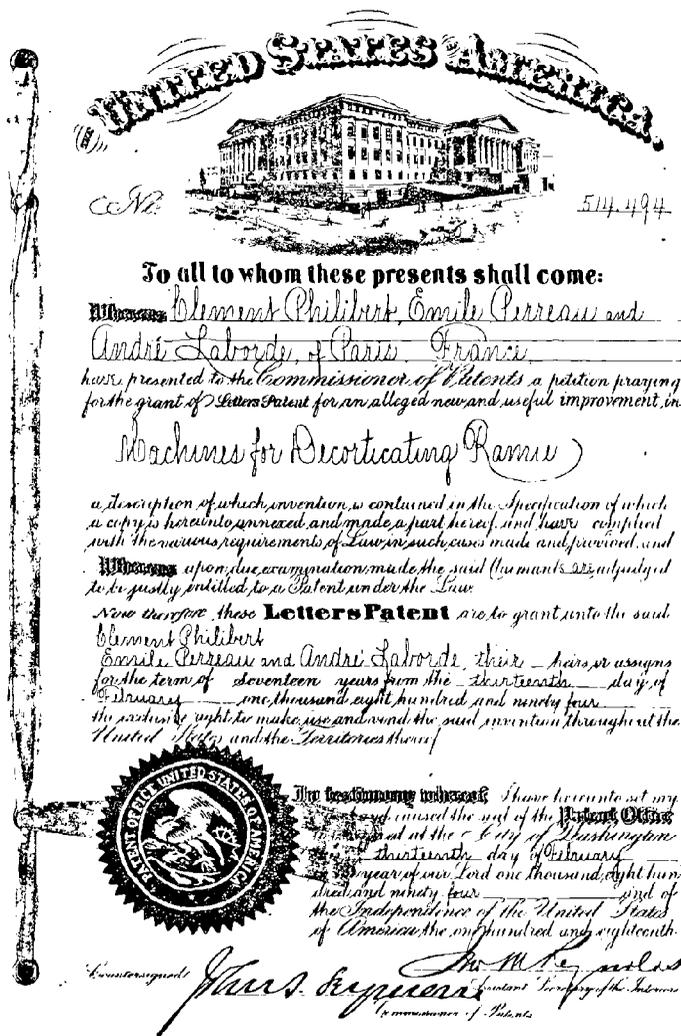 The United States of America,
No. 514,494
To all to whom these presents shall come:
Whereas Clement Philibert, Emile Perreau and
André Laborde, of Paris, France,
have presented to the Commissioner of Patents a petition praying
for the grant of Letters Patent for an alleged new and useful improvement in
Machines for Decorticating Ramie
a description of which invention is contained in the Specification of which
a copy is hereunto annexed and made a part hereof and have complied
with the various requirements of Law in such cases made and provided, and
Whereas upon due examination made the said Claimants are adjudged
to be justly entitled to a Patent under the Law.
Now therefore these Letters Patent are to grant unto the said
Clement Philibert
Emile Perreau and André Laborde, their heirs or assigns
for the term of Seventeen years from the thirteenth day of
February one thousand eight hundred and ninety four
the exclusive right to make use and vend the said invention throughout the
United States and the Territories thereof
PATENT OFFICE UNITED STATES OF AMERICA
In testimony whereof I have hereunto set my
and caused the seal of the Patent Office
at the City of Washington
thirteenth day of February
year of our Lord one thousand, eight hun
dred and ninety four and of
the Independence of the United States
of America the one hundred and eighteenth.
Countersigned
Jno M Reynolds
Assistant Secretary of the Interior
John S. Seymour
Commissioner of Patents